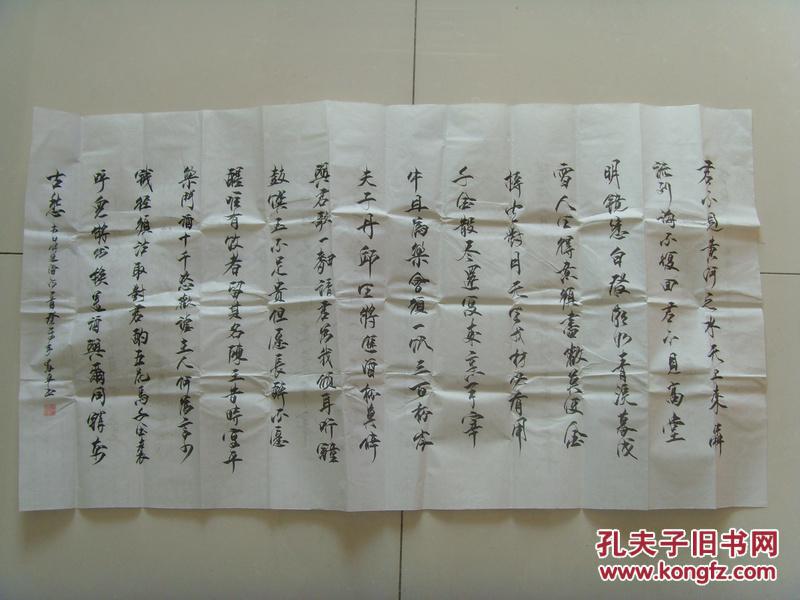 君不見黃河之水天上來奔
流到海不復回君不見高堂
明鏡悲白髮朝如青絲暮成
雪人生得意須盡歡莫使金
樽空對月天生我材必有用
千金散盡還復來烹羊宰
牛且為樂會須一飲三百杯岑
夫子丹邱生將進酒杯莫停
與君歌一曲請君為我傾耳听鐘
鼓饌玉不足貴但願長醉不願
醒唯有飲者留其名陳王昔時宴平
樂鬥酒十千恣歡謔主人何為言少
錢徑須沽取對君酌五花馬千金裘
呼兒將出換美酒與爾同銷萬
古愁
孔夫子旧书网
www.kongfz.com